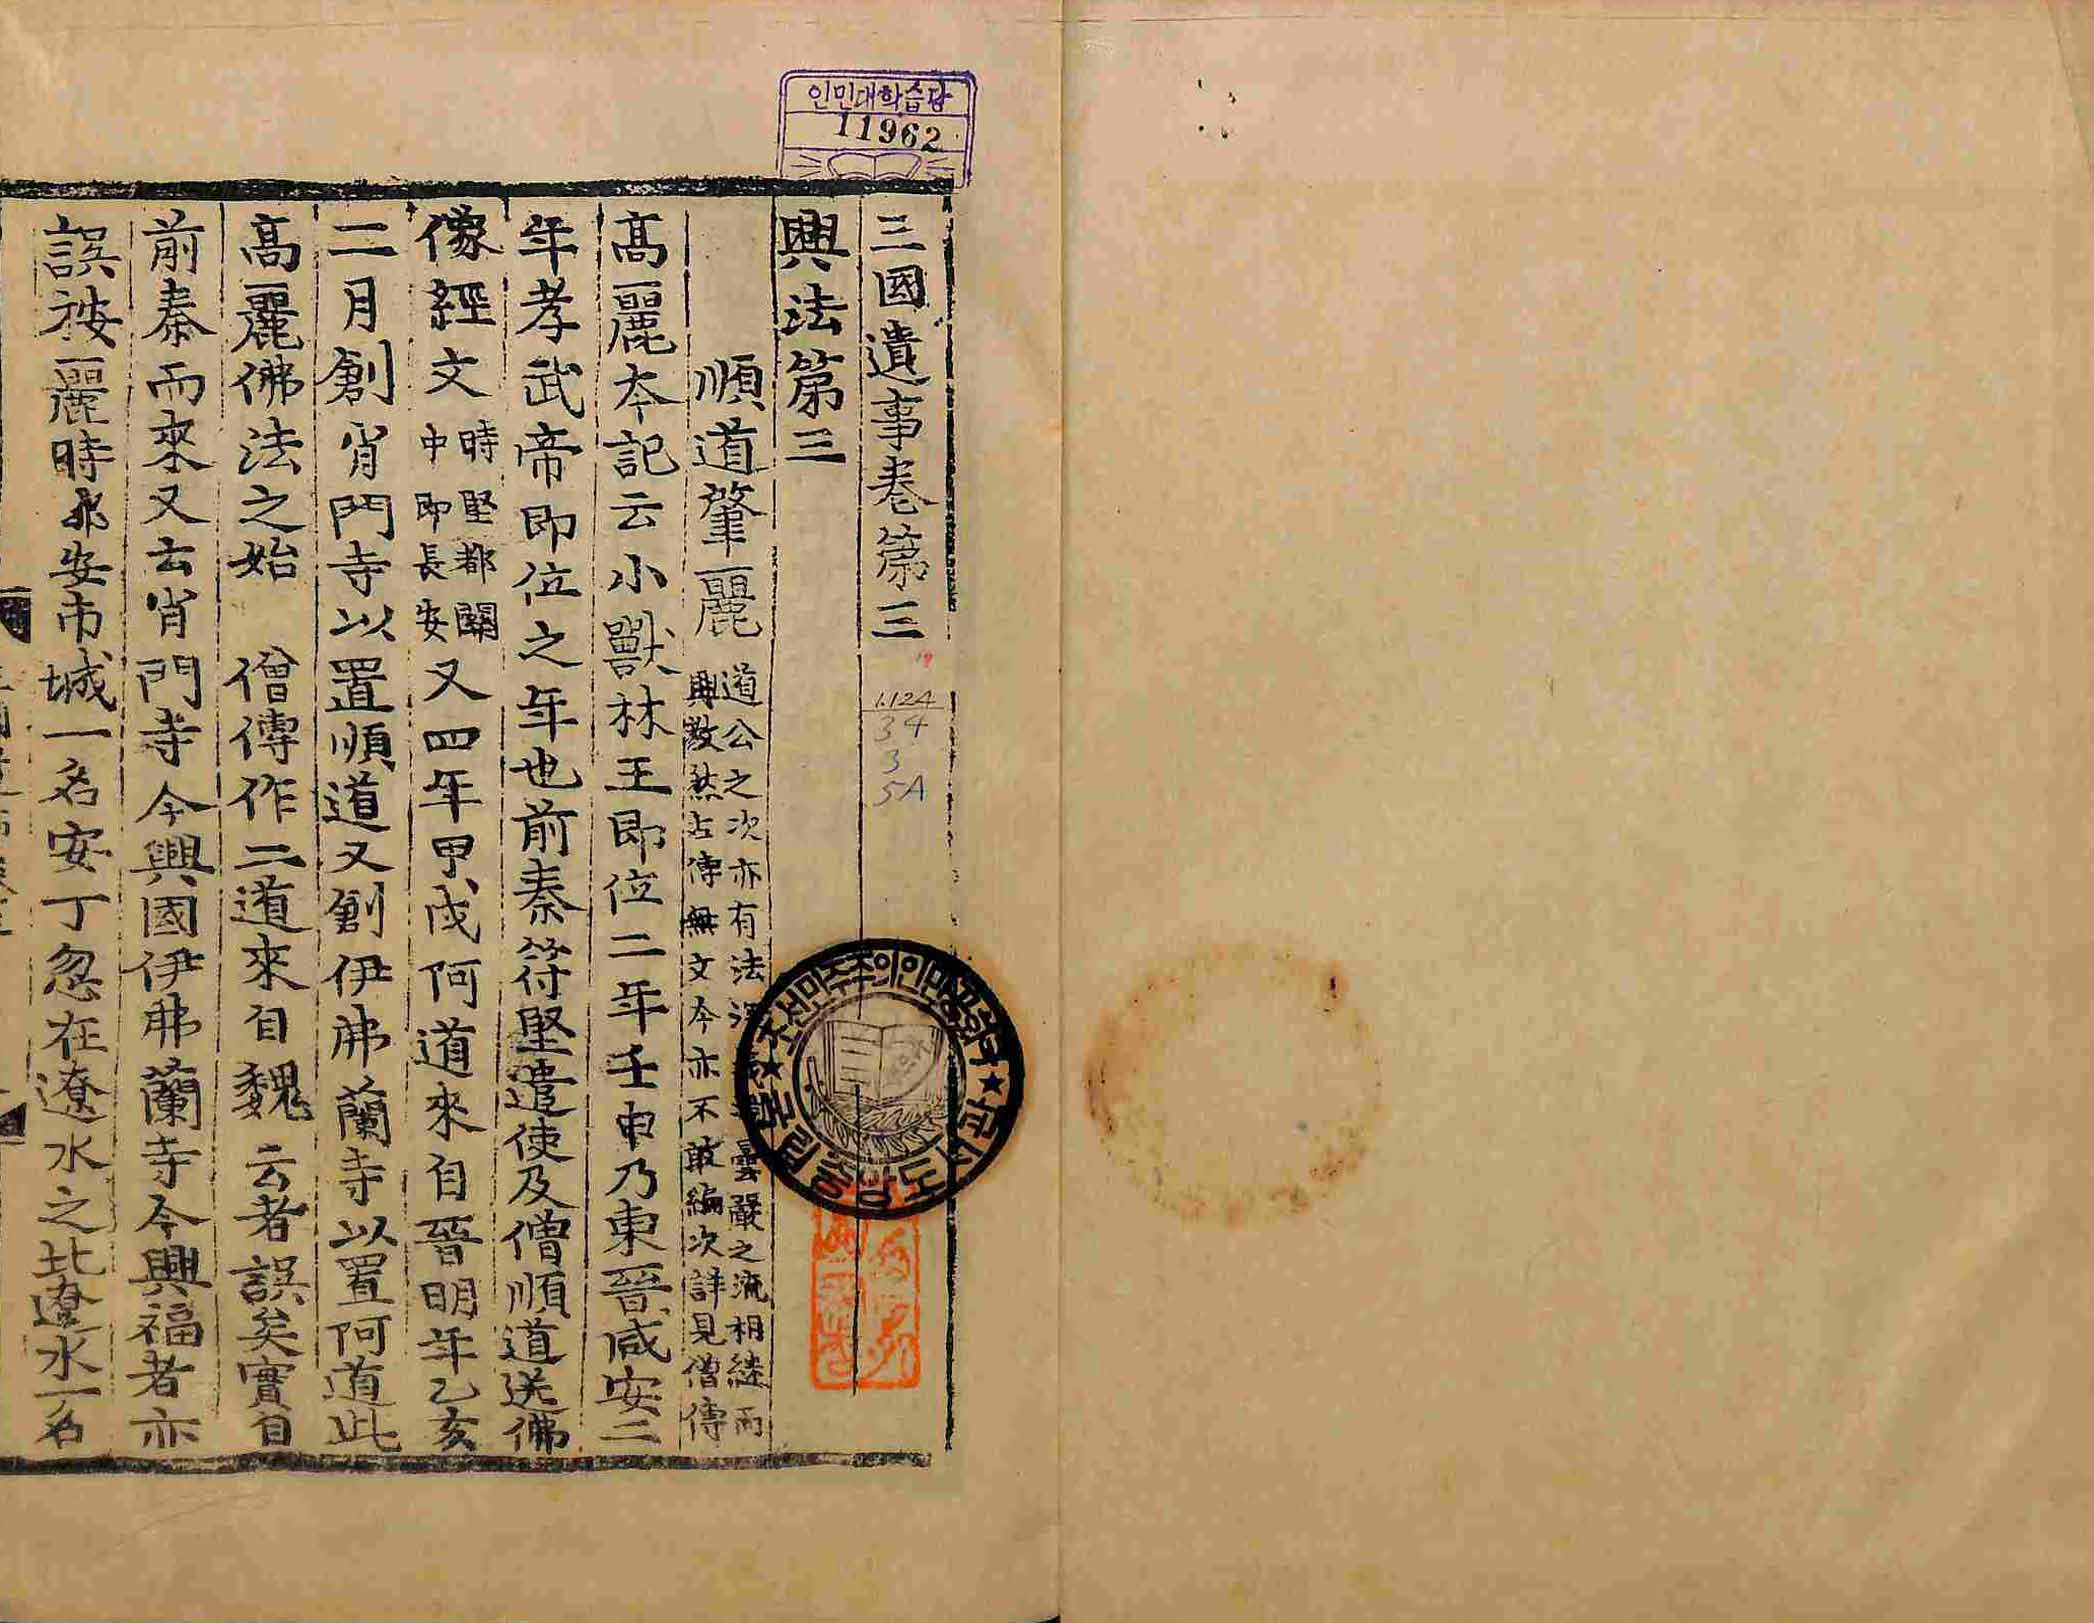 인민대학습당
11962
三國遺事卷第三
1.124
34
3
5A
興法第三
順道肇麗 道公之次亦有法深 曇嚴之流相継而
興敎然古傳無文今亦不敢編次詳見僧傳
髙麗夲記云小獸林王即位二年壬申乃東晉咸安二
年孝武帝即位之年也前秦符堅遣使及僧順道送佛
像經文 時堅都關
中即長安 又四年甲戌阿道來自晉明年乙亥
二月創肖門寺以置順道又創伊弗蘭寺以置阿道此
髙麗佛法之始 僧傳作二道來自魏云者誤矣實自
前秦而來又云肖門寺今興國伊弗蘭寺今興福者亦
誤按麗時都安市城一名安丁忽在遼水之北遼水一名
조선민주주의인민공화국
국립중앙도서관